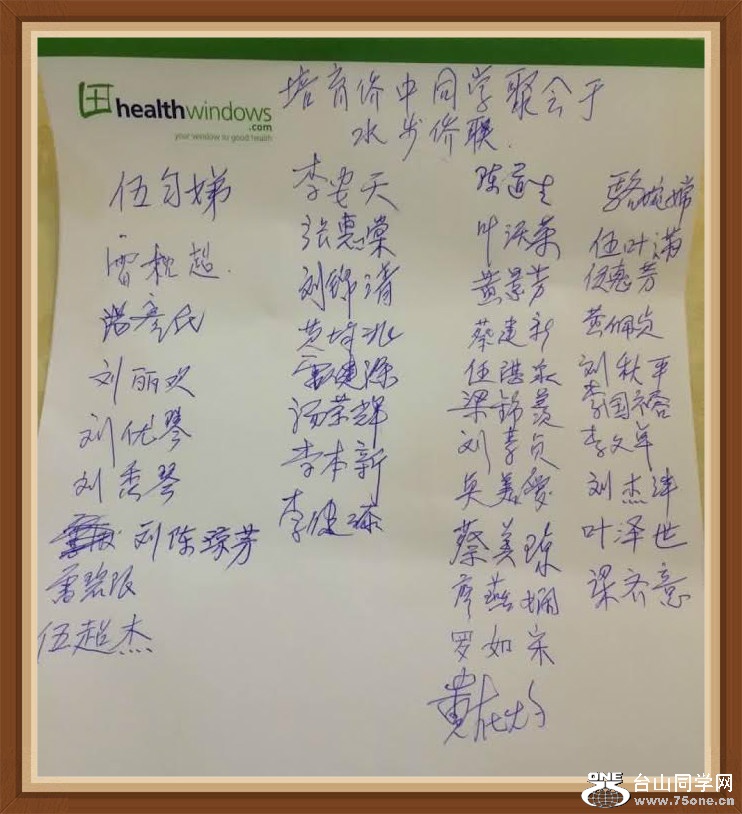 healthwindows
.com
your window to good health
培育侨中同学聚会于
水步侨联
伍匀娣
雷 超
刘丽欢
刘优琴
刘秀琴
刘陈琼芳
雷碧
伍超杰
李安天
张惠棠
刘锦清
黄
汤荣辉
李本新
李健
陈道生
叶 荣
黄景芳
蔡建新
伍
梁锦羡
刘孝贞
吴美爱
蔡美琼
廖燕娴
罗如宋
骆婉嫦
伍叶满
伍惠芳
黄佩贞
刘秋平
李国
李文卓
刘杰
叶泽世
梁齐意
ONE
台山同学网
www.75one.cn